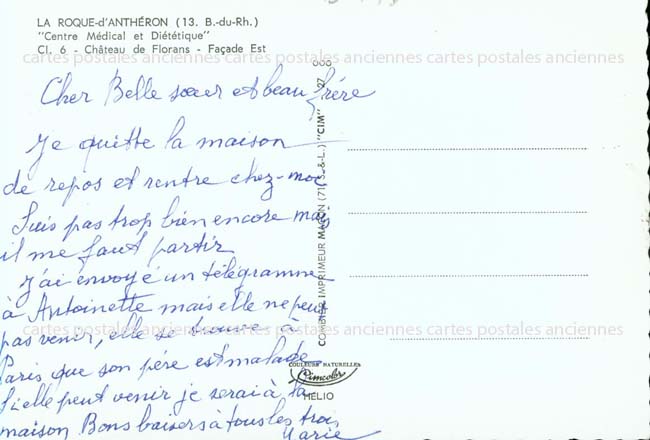 LA ROQUE-d'ANTHÉRON (13. B.-du-Rh.)
"Centre Médical et Diététique"
Cl. 6 - Château de Florans - Façade Est
cartes postales anciennes cartes postales anciennes cartes postales anciennes
Cher Belle sœur et beau frére
Je quitte la maison
de repos et rentre chez-moi
Suis pas trop bien encore mais
il me faut partir
J'ai envoyé un télégramme
à Antoinette mais elle ne peut
pas venir, elle se trouve a
Paris que son pére est malade
Si elle peut venir je serai à la
maison Bons baisers à tous les trois
Marie
cartes postales anciennes cartes postales anciennes cartes postales anciennes
COMBIER IMPRIMEUR MACON (71 S.-&-L.) "CIM"
COULEURS NATURELLES
Cimcolor
HELIO